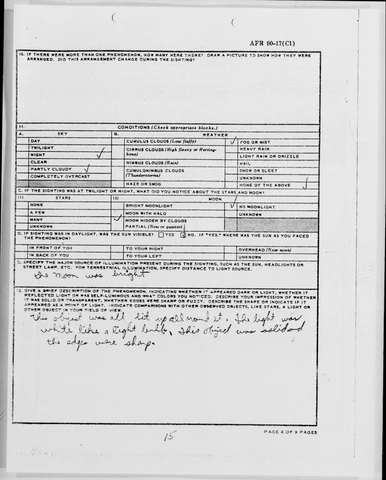 AFR 80-17(C1)
10. IF THERE WERE MORE THAN ONE PHENOMENON, HOW MANY WERE THERE? DRAW A PICTURE TO SHOW HOW THEY WERE
ARRANGED. DID THIS ARRANGEMENT CHANGE DURING THE SIGHTING?
11. CONDITIONS (Check appropriate blocks.)
A. SKY B. WEATHER
DAY CUMULUS CLOUDS (Low fluffy) ✓ FOG OR MIST
TWILIGHT CIRRUS CLOUDS (High fleecy or Herring- HEAVY RAIN
NIGHT ✓ bone) LIGHT RAIN OR DRIZZLE
CLEAR NIMBUS CLOUDS (Rain) HAIL
PARTLY CLOUDY ✓ CUMULONIMBUS CLOUDS SNOW OR SLEET
COMPLETELY OVERCAST (Thunderstorms) UNKNOWN
HAZE OR SMOG NONE OF THE ABOVE
C. IF THE SIGHTING WAS AT TWILIGHT OR NIGHT, WHAT DID YOU NOTICE ABOUT THE STARS AND MOON?
(1) STARS (2) MOON
NONE BRIGHT MOONLIGHT NO MOONLIGHT
A FEW MOON WITH HALO UNKNOWN
MANY MOON HIDDEN BY CLOUDS
UNKNOWN PARTIAL (New or quarter)
D. IF SIGHTING WAS IN DAYLIGHT, WAS THE SUN VISIBLE? YES NO. IF "YES," WHERE WAS THE SUN AS YOU FACED
THE PHENOMENON?
IN FRONT OF YOU TO YOUR RIGHT OVERHEAD (Near noon)
IN BACK OF YOU TO YOUR LEFT UNKNOWN
E. SPECIFY THE MAJOR SOURCE OF ILLUMINATION PRESENT DURING THE SIGHTING, SUCH AS THE SUN, HEADLIGHTS OR
STREET LAMP, ETC. FOR TERRESTRIAL ILLUMINATION, SPECIFY DISTANCE TO LIGHT SOURCE.
the moon was bright
12. GIVE A BRIEF DESCRIPTION OF THE PHENOMENON, INDICATING WHETHER IT APPEARED DARK OR LIGHT, WHETHER IT
REFLECTED LIGHT OR WAS SELF-LUMINOUS AND WHAT COLORS YOU NOTICED. DESCRIBE YOUR IMPRESSION OF WHETHER
IT WAS SOLID OR TRANSPARENT, WHETHER EDGES WERE SHARP OR FUZZY. DESCRIBE THE SHAPE OR INDICATE IF IT
APPEARED AS A POINT OF LIGHT. INDICATE COMPARISONS WITH OTHER OBSERVED OBJECTS, LIKE STARS, A LIGHT OR
OTHER OBJECT IN YOUR FIELD OF VIEW.
The object was all lit up all around it. The light was
white like a light bulb. This object was solid and
the edges were sharp.
15
PAGE 4 OF 9 PAGES